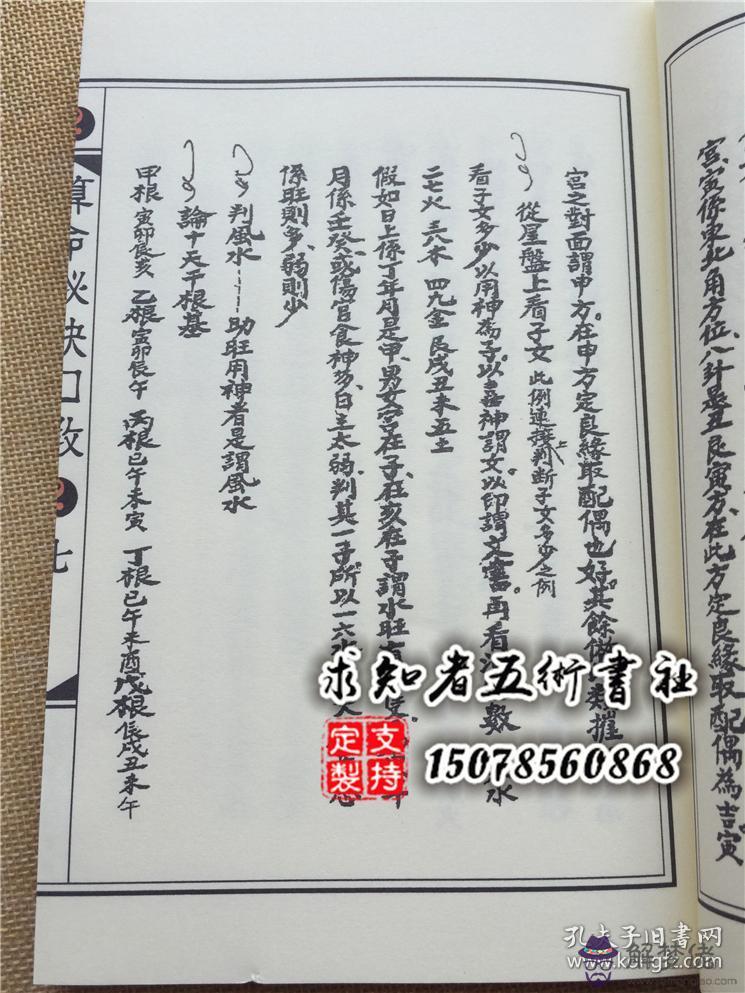 宫之對面謂申方。在申方定良緣取配偶也好。其餘
從星盤上看子女 此例連接上判斷子女多少之例
看子女多少以用神為子。以喜神謂女。以印謂文書。再看 數 水
二七火 三八木 四九金 艮戌丑未五土
假如日上係丁年月是甲、男女宮在子、在亥在子謂水旺
月係壬癸或傷官食神多、日主太弱。判其一子。所以一六水
係旺則多、弱則少
判風水——助旺用神者是謂風水
論十天干根基
甲根 寅卯辰亥 乙根 寅卯辰午 丙根 巳午未寅 丁根 巳午未酉 戊根 辰戌丑未午
算命秘訣口
七
宫、寅係東北角方位、八卦是五艮寅方、在此方定良緣取配偶為吉寅
求知者五術書社
支持定製
15078560868
孔夫子旧书网
www.kongfz.com
解梦佬